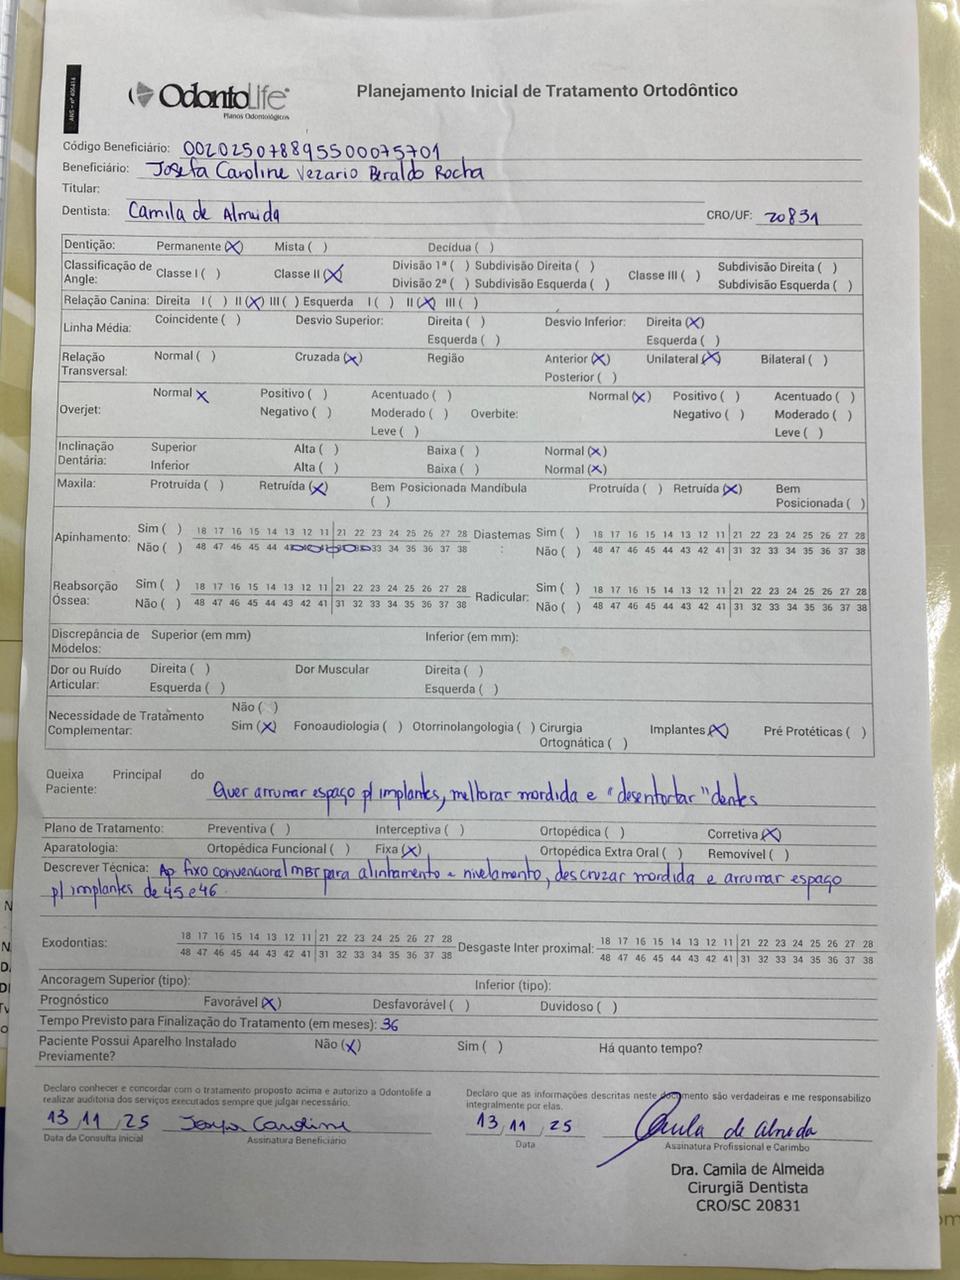 ANS - nº 406414
OdontoLife
Planos Odontológicos
Planejamento Inicial de Tratamento Ortodôntico
Código Beneficiário: 002025078895500075701
Beneficiário: Josefa Caroline Vezario Beraldo Rocha
Titular:
Dentista: Camila de Almeida CRO/UF: 20831
Dentição: Permanente (X) Mista ( ) Decídua ( )
Classificação de Angle: Classe I ( ) Classe II (X) Divisão 1ª ( ) Subdivisão Direita ( ) Classe III ( ) Subdivisão Direita ( )
Divisão 2ª ( ) Subdivisão Esquerda ( ) Subdivisão Esquerda ( )
Relação Canina: Direita I ( ) II (X) III ( ) Esquerda I ( ) II (X) III ( )
Linha Média: Coincidente ( ) Desvio Superior: Direita ( ) Desvio Inferior: Direita (X)
Esquerda ( ) Esquerda ( )
Relação Transversal: Normal ( ) Cruzada (X) Região Anterior (X) Unilateral (X) Bilateral ( )
Posterior ( )
Overjet: Normal X Positivo ( ) Acentuado ( ) Overbite: Normal (X) Positivo ( ) Acentuado ( )
Negativo ( ) Moderado ( ) Negativo ( ) Moderado ( )
Leve ( ) Leve ( )
Inclinação Dentária: Superior Alta ( ) Baixa ( ) Normal (X)
Inferior Alta ( ) Baixa ( ) Normal (X)
Maxila: Protruída ( ) Retruída (X) Bem Posicionada ( ) Mandíbula Protruída ( ) Retruída (X) Bem Posicionada ( )
Apinhamento: Sim ( ) 18 17 16 15 14 13 12 11 21 22 23 24 25 26 27 28 Diastemas: Sim ( ) 18 17 16 15 14 13 12 11 21 22 23 24 25 26 27 28
Não ( ) 48 47 46 45 44 33 34 35 36 37 38 Não ( ) 48 47 46 45 44 43 42 41 31 32 33 34 35 36 37 38
Reabsorção Óssea: Sim ( ) 18 17 16 15 14 13 12 11 21 22 23 24 25 26 27 28 Radicular: Sim ( ) 18 17 16 15 14 13 12 11 21 22 23 24 25 26 27 28
Não ( ) 48 47 46 45 44 43 42 41 31 32 33 34 35 36 37 38 Não ( ) 48 47 46 45 44 43 42 41 31 32 33 34 35 36 37 38
Discrepância de Modelos: Superior (em mm) Inferior (em mm):
Dor ou Ruído Articular: Direita ( ) Dor Muscular Direita ( )
Esquerda ( ) Esquerda ( )
Necessidade de Tratamento Complementar: Não ( )
Sim (X) Fonoaudiologia ( ) Otorrinolangologia ( ) Cirurgia Ortognática ( ) Implantes (X) Pré Protéticas ( )
Queixa Principal do Paciente: Quer arrumar espaço p/ implantes, melhorar mordida e "desentortar" dentes
Plano de Tratamento: Preventiva ( ) Interceptiva ( ) Ortopédica ( ) Corretiva (X)
Aparatologia: Ortopédica Funcional ( ) Fixa (X) Ortopédica Extra Oral ( ) Removível ( )
Descrever Técnica: Ap fixo convencional MBT para alinhamento e nivelamento, descruzar mordida e arrumar espaço
p/ implantes de 45 e 46.
Exodontias: 18 17 16 15 14 13 12 11 21 22 23 24 25 26 27 28 Desgaste Inter proximal: 18 17 16 15 14 13 12 11 21 22 23 24 25 26 27 28
48 47 46 45 44 43 42 41 31 32 33 34 35 36 37 38 48 47 46 45 44 43 42 41 31 32 33 34 35 36 37 38
Ancoragem Superior (tipo): Inferior (tipo):
Prognóstico Favorável (X) Desfavorável ( ) Duvidoso ( )
Tempo Previsto para Finalização do Tratamento (em meses): 36
Paciente Possui Aparelho Instalado Previamente? Não (X) Sim ( ) Há quanto tempo?
Declaro conhecer e concordar com o tratamento proposto acima e autorizo a Odontolife a
realizar auditoria dos serviços executados sempre que julgar necessário.
Declaro que as informações descritas neste documento são verdadeiras e me responsabilizo
integralmente por elas.
13/11/25 Josefa Caroline 13/11/25 Camila de Almeida
Data da Consulta Inicial Assinatura Beneficiário Data Assinatura Profissional e Carimbo
Dra. Camila de Almeida
Cirurgiã Dentista
CRO/SC 20831